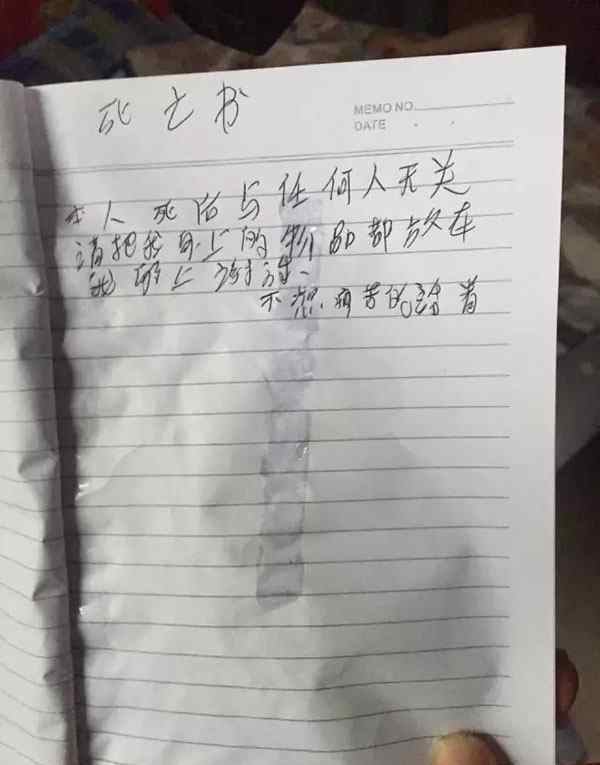 死亡书
MEMO NO
DATE
本人死后与任何人无关
请把我身上的物品都放在
我身上 谢谢
不想 痛苦的 着